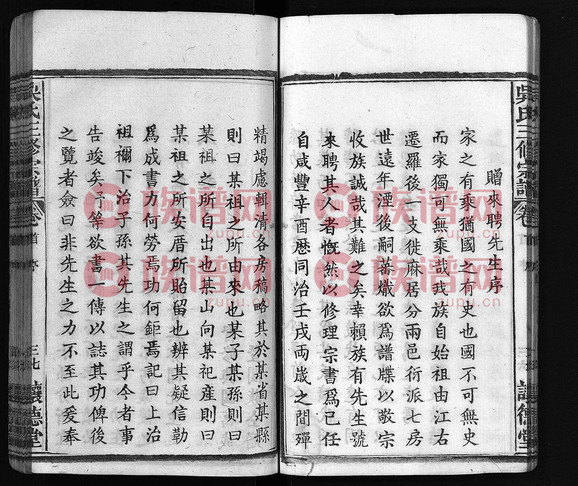 贈來聘先生序
家之有乘猶國之有史也國不可無史
而家獨可無乘哉我族自始祖由江右
遷羅後一支徙麻居分兩邑衍派七房
世遠年湮後嗣蕃熾欲為譜牒以敬宗
收族誠哉其難之矣幸賴族有先生號
來聘其人者慨然以修理宗書爲己任
自咸豐辛酉歷同治壬戌兩歲之間殫
精竭慮輯清各房稿略其於某省某縣
則曰某祖之所由來也某子某孫則曰
某祖之所自出也某山向某祀產則曰
某祖之所安厝所貽留也辨其疑信勤
爲成書力何勞焉功何鉅焉記曰上治
祖禰下治子孫其先生之謂乎今者事
告竣矣 等欲書一傳以誌其功俾後
之覽者僉曰非先生之力不至此爰奉
吳氏三修宗譜
卷首
序
三七
讓德堂
吳氏三修宗譜
卷
首
讓德堂
族谱网
yupu.cn
族谱网
yupu.cn